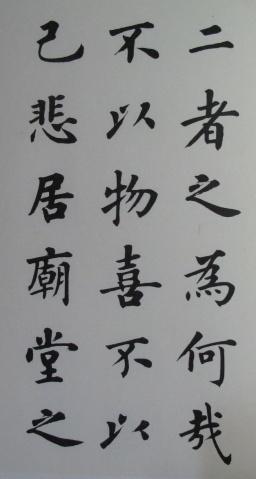 二者之為何哉
不以物喜不以
己悲居廟堂之